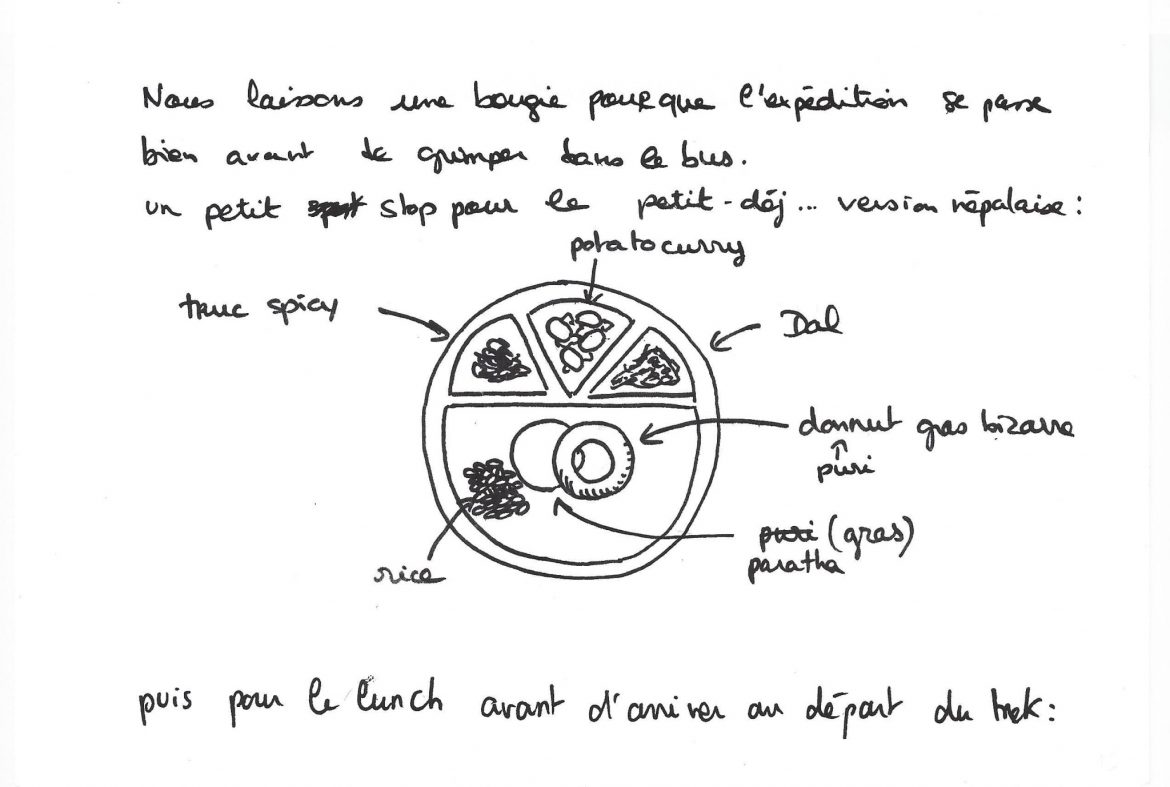 Nous laissons une bougie pour que l'expédition se passe
bien avant de grimper dans le bus.
un petit stop pour le petit-déj... version népalaise :
potato curry
truc spicy
Dal
donnut gras bizarre
puri
puri (gras)
paratha
rice
puis pour le lunch avant d'arriver au départ du trek :